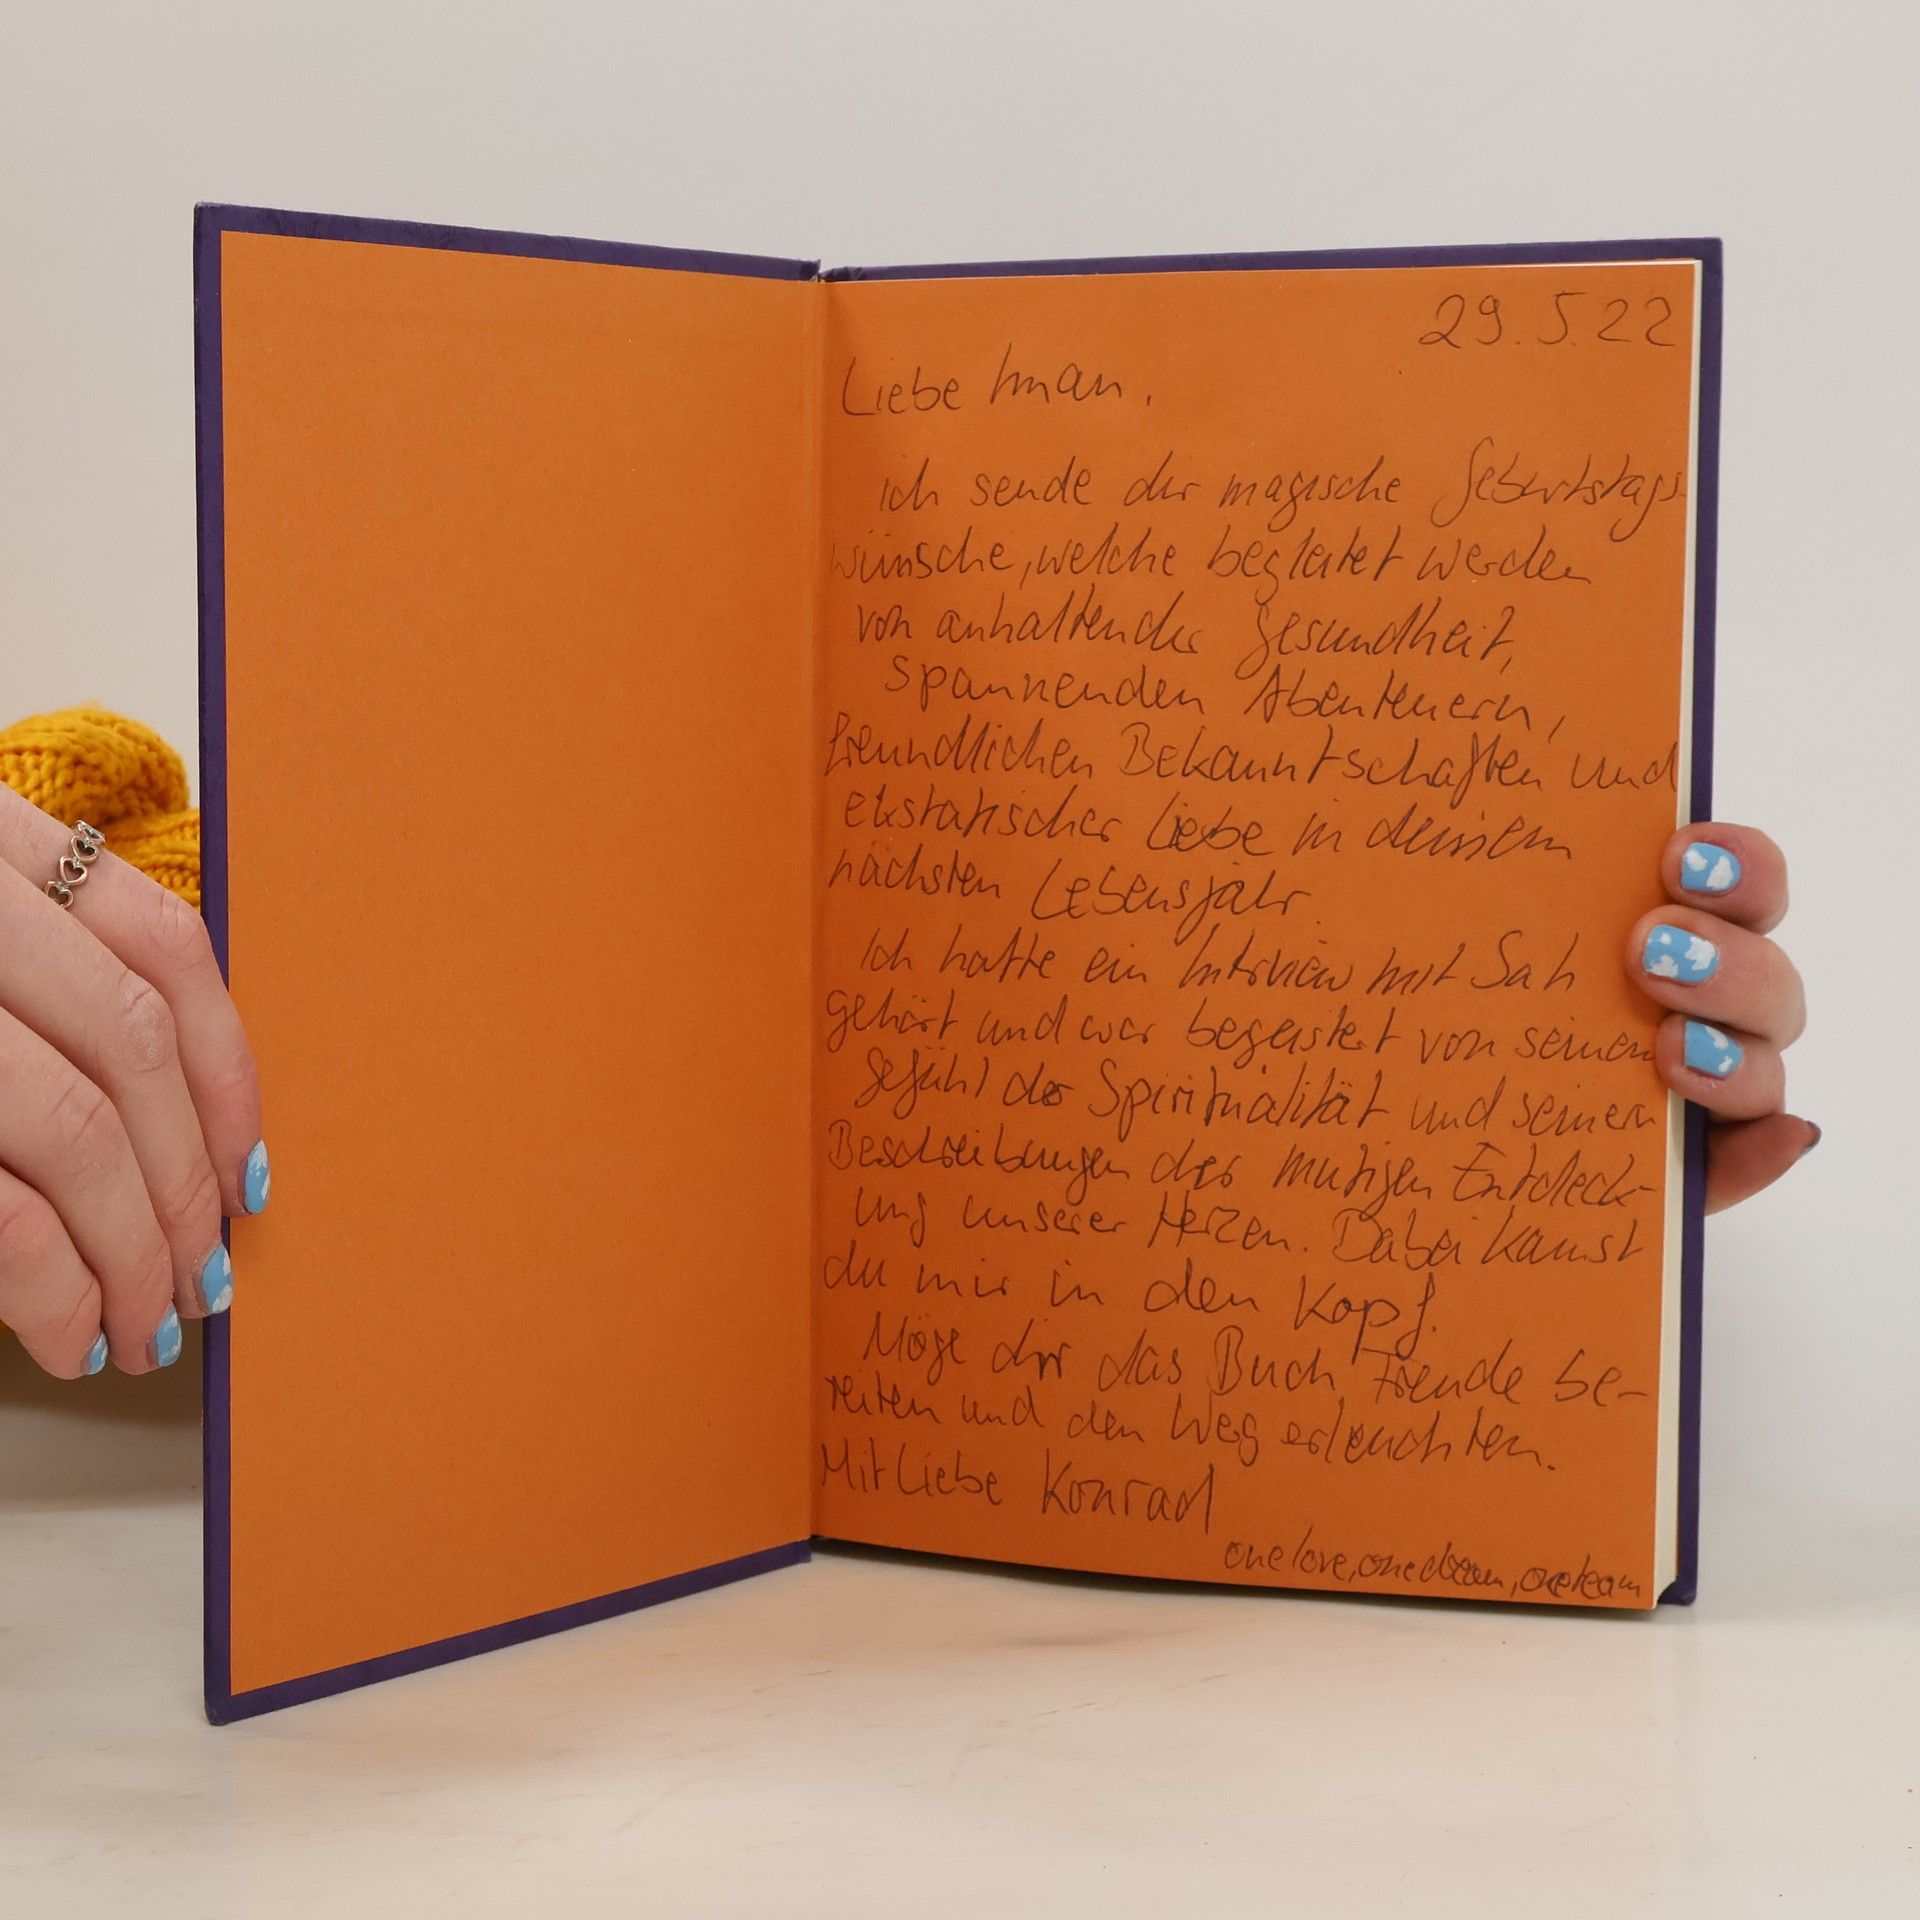 29.5.22
Liebe Iman,
ich sende dir magische Geburtstags-
wünsche, welche begleitet werden
von anhaltender Gesundheit,
spannenden Abenteuern,
freundlichen Bekanntschaften und
ekstatischer Liebe in deinem
nächsten Lebensjahr.
Ich hatte ein Interview mit Sah
gehört und war begeistert von seinem
Gefühl der Spiritualität und seinen
Beschreibungen der mutigen Entdeck-
ung unserer Herzen. Dabei kamst
du mir in den Kopf.
Möge dir das Buch Freude be-
reiten und den Weg erleuchten.
Mit Liebe Konrad
one love, one dream, one team